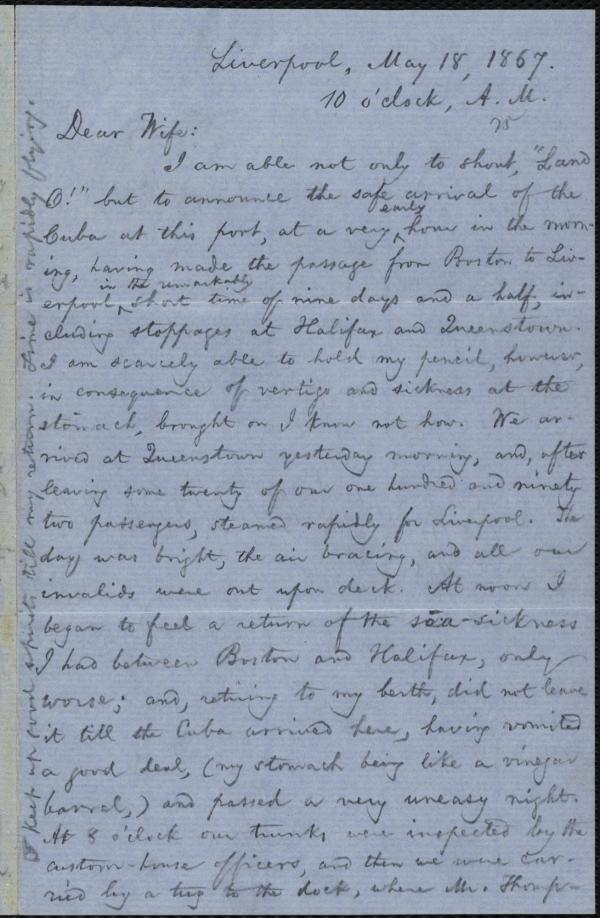 Liverpool, May 18, 1867.
10 o'clock, A. M.
Dear Wife:
I am able not only to shout, "Land
O!" but to announce the safe arrival of the
early
Cuba at this port, at a very hour in the morn-
ing, having made the passage from Boston to Liv-
in the remarkably
erpool, short time of nine days and a half, in-
cluding stoppages at Halifax and Queenstown.
I am scarcely able to hold my pencil, however,
in consequence of vertigo and sickness at the
stomach, brought on I know not how. We ar-
rived at Queenstown yesterday morning, and, after
leaving some twenty of our one hundred and ninety
two passengers, steamed rapidly for Liverpool. The
day was bright, the air bracing, and all our
invalids were out upon deck. At noon I
began to feel a return of the sea-sickness
I had between Boston and Halifax, only
worse; and, retiring to my berth, did not leave
it till the Cuba arrived here, having vomited
a good deal, (my stomach being like a vinegar
barrel,) and passed a very uneasy night.
At 8 o'clock our trunks were inspected by the
custom-house officers, and then we were car-
ried by a tug to the dock, where Mr. Thomp-
Keep up good spirits till my return. Time is rapidly flying.